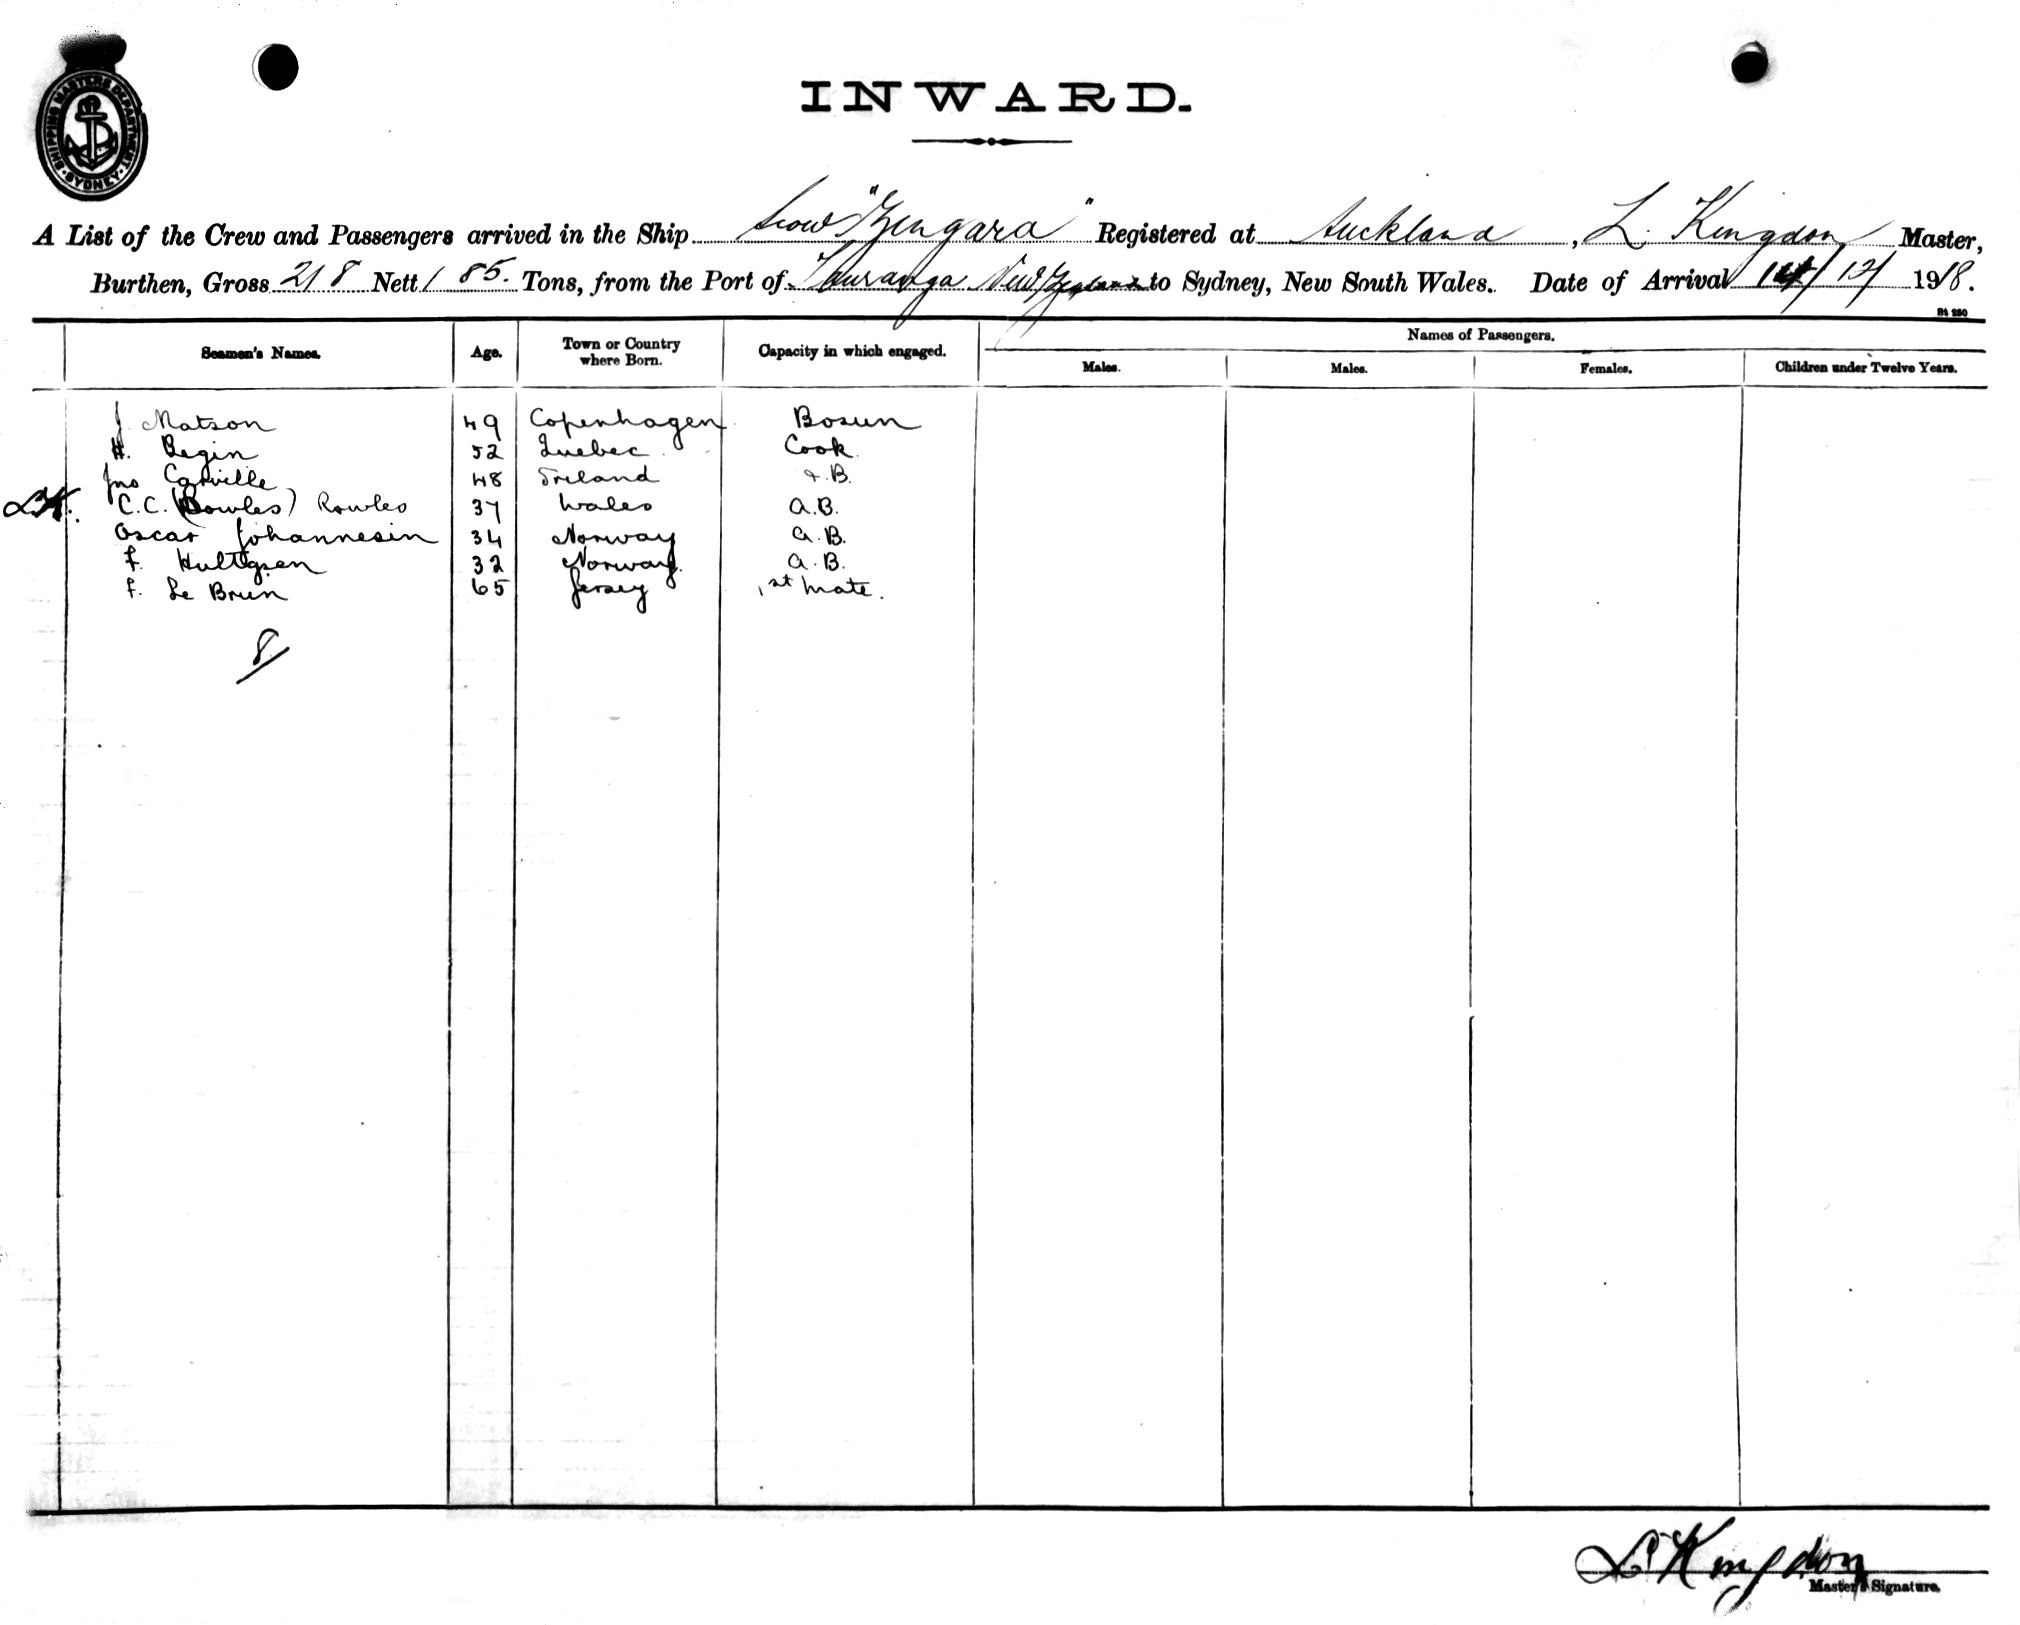 SHIPPING MASTERS DEPARTMENT · SYDNEY ·
INWARD.
A List of the Crew and Passengers arrived in the Ship Scow "Zingara" Registered at Auckland, L. Kingdon Master,
Burthen, Gross 218 Nett 185. Tons, from the Port of Tauranga New Zealand to Sydney, New South Wales. Date of Arrival 14/12/1918.
St 250
Seamen's Names. Age. Town or Country where Born. Capacity in which engaged. Names of Passengers.
Males. Males. Females. Children under Twelve Years.
J Matson 49 Copenhagen Bosun
H. Begin 52 Quebec Cook
Jno Carville 48 Ireland A.B.
LK. C.C. (Bowles) Rowles 37 Wales A.B.
Oscar Johannesin 34 Norway A.B.
F. Hultgren 32 Norway A.B.
F. Le Brun 65 Jersey 1st Mate.
8/
L Kingdon
Master's Signature.